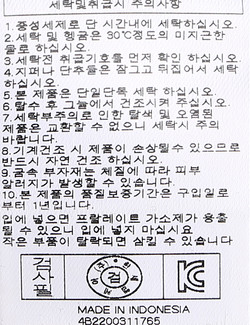 세탁및취급시 주의사항
1. 중성세제로 단 시간내에 세탁하십시오.
2. 세탁 및 헹굼은 30℃정도의 미지근한
물로 하십시오.
3. 세탁전 취급기호를 먼저 확인 하십시오.
4. 지퍼나 단추들은 잠그고 뒤집어서 세탁
하십시오.
5. 본 제품은 단일단독 세탁 하십시오.
6. 탈수 후 그늘에서 건조시켜 주십시오.
7. 세탁부주의로 인한 탈색 및 오염된
제품은 교환할 수 없으니 세탁시 주의
바랍니다.
8. 기계건조 시 제품이 손상될수 있으므로
반드시 자연 건조 하십시오.
9. 금속 부자재는 체질에 따라 피부
알러지가 발생할 수 있습니다.
10. 본 제품의 품질보증기간은 구입일로
부터 1년입니다.
입에 넣으면 프탈레이트 가소제가 용출
될 수 있으니 입에 넣지 마십시요
작은 부품이 탈락되면 삼킬 수 있습니다
검사필
검
KC
MADE IN INDONESIA
4B2200311765